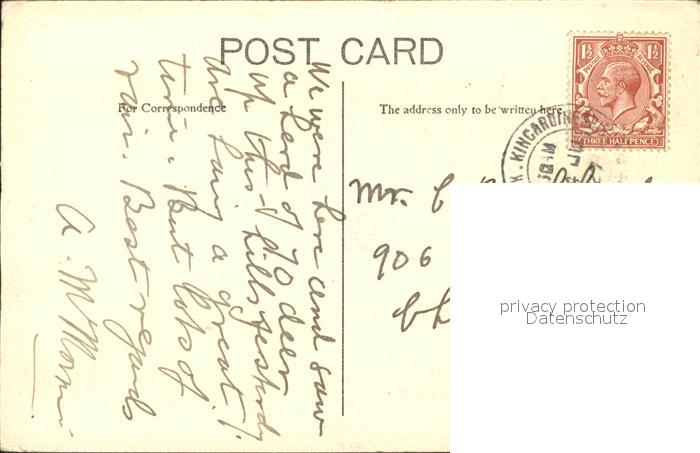 POST CARD
For Correspondence
The address only to be written here
1½ 1½
THREE HALFPENCE
KINCARDINE
We were here and saw
a herd of 70 deer
up this hills yesterday
are having a great
time. But lots of
rain. Best regards
A. McMorran
Mr. C
906
Ch
privacy protection
Datenschutz